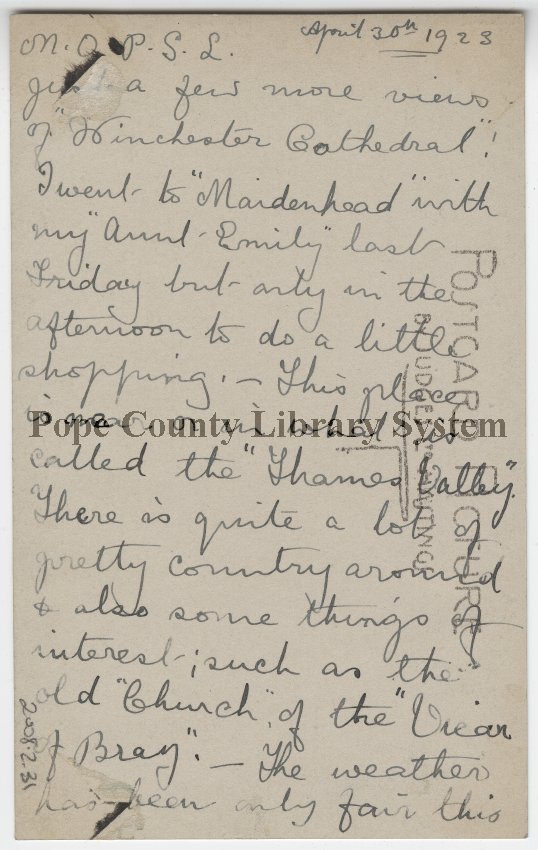 M. O. P. S. L. April 30th 1923
just a few more views
of "Winchester Cathedral"!
I went to "Maidenhead" with
my "Aunt Emily" last
Friday but only in the
afternoon to do a little
shopping. — This place
is near or in what is
called the "Thames Valley".
There is quite a lot of
pretty country around
& also some things of
interest; such as the
old "Church", of the "Vicar
of Bray". — The weather
has been only fair this
Pope County Library System
POSTCARD
2008.2.31